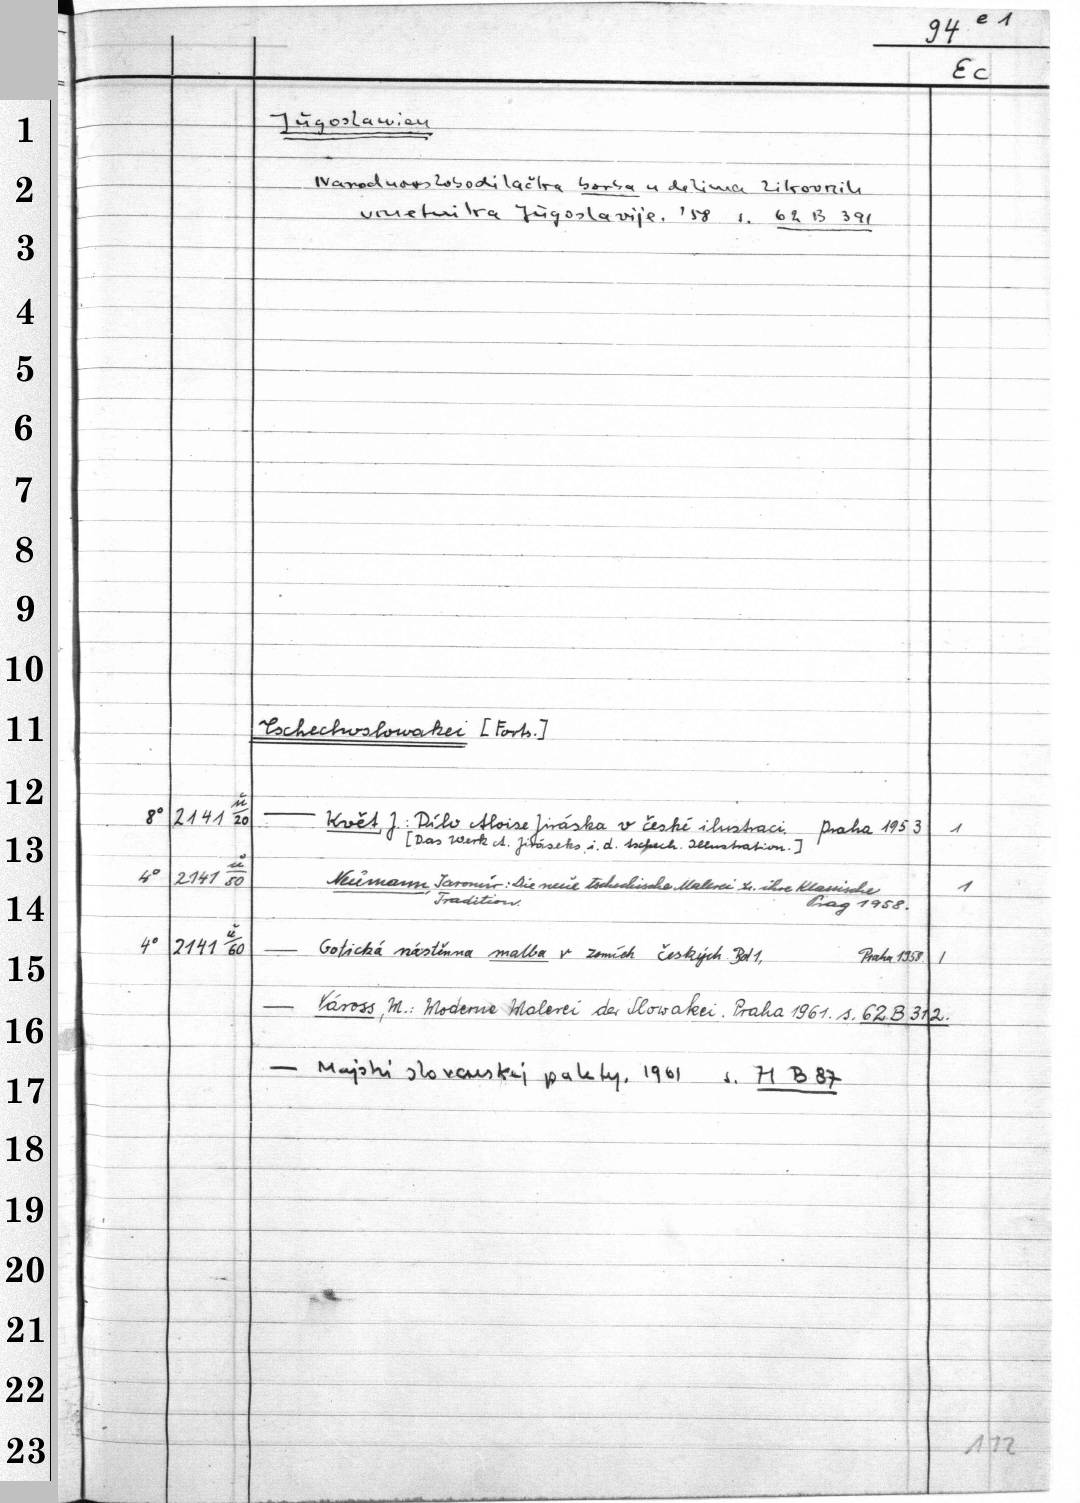 94 e 1
Ec
1
Jugoslawien
2
Narodnooslobodilačka borba u delima likovnih
umetnika Jugoslavije. '58 s. 62 B 391
3
4
5
6
7
8
9
10
11
Tschechoslowakei [Forts.]
12
8° 2141 ü/20 — Květ, J.: Dílo Aloise Jiráska v české ilustraci. Praha 1953 1
13
[Das Werk A. Jiráseks i. d. tschech. Illustration.]
4° 2141 ü/50 Neumann, Jaromír: Die neue tschechische Malerei u. ihre klassische 1
14
Tradition. Prag 1958.
4° 2141 ü/60 — Gotická nástěnna malba v zemích českých. Bd 1, Praha 1958 1
15
— Váross, M.: Moderne Malerei der Slowakei. Praha 1961. s. 62 B 312.
16
— Majstri slovenskej palety. 1961 s. 71 B 87
17
18
19
20
21
22
23
112